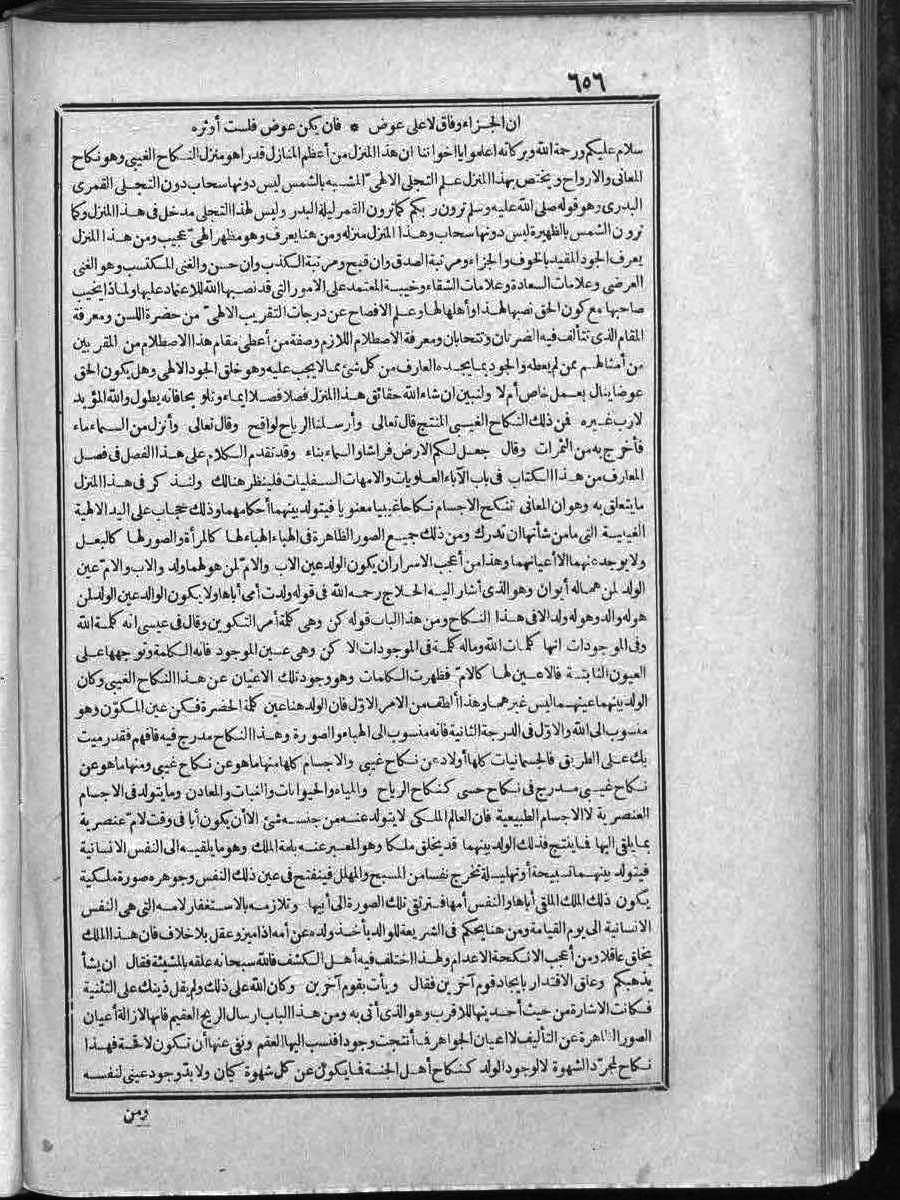 ٦٥٦
ان الجزاء وفاق لا على عوض * فان يكن عوض فلست أوثره
سلام عليكم ورحمة الله وبركاته اعلموا يا اخواننا ان هذا المنزل من أعظم المنازل قدرا هو منزل النكاح الغيبى وهو نكاح
المعانى والارواح ويختص بهذا المنزل علم التجلى الالهى المشبه بالشمس ليس دونها سحاب دون التجلى القمرى
البدرى وهو قوله صلى الله عليه وسلم ترون ربكم كما ترون القمر ليلة البدر وليس لهذا التجلى مدخل فى هذا المنزل وكما
ترون الشمس بالظهيرة ليس دونها سحاب وهذا المنزل منزله ومن هنا يعرف وهو مظهر الهىّ عجيب ومن هذا المنزل
يعرف الجود المقيد بالخوف والجزاء ومرتبة الصدق وان قبح ومرتبة الكذب وان حسن والغنى المكتسب وهو الغنى
العرضى وعلامات السعادة وعلامات الشقاء وخيبة المعتمد على الامور التى قد نصبها الله للاعتماد عليها ولماذا يخيب
صاحبها مع كون الحق نصبها لهذا وأهلها لها وعلم الافصاح عن درجات التقريب الالهىّ من حضرة اللسن ومعرفة
المقام الذى تتألف فيه الضرتان وتتحابان ومعرفة الاصطلام اللازم وصفة من أعطى مقام هذا الاصطلام من المقربين
من أمثالهم ممن لم يعطه والجود بما يجده العارف من كل شئ مما لا يجب عليه وهو خلق الجود الالهى وهل يكون الحق
عوضا ينال بعمل خاص أم لا ولنبين ان شاء الله حقائق هذا المنزل فصلا فصلا ايماء وتلويحا فانه يطول والله المؤيد
لا رب غيره فمن ذلك النكاح الغيبى المنتج قال تعالى وأرسلنا الرياح لواقح وقال تعالى وأنزل من السماء ماء
فأخرج به من الثمرات وقال جعل لكم الارض فراشا والسماء بناء وقد تقدم الكلام على هذا الفصل فى فصل
المعارف من هذا الكتاب فى باب الآباء العلويات والامهات السفليات فلينظر هنالك ولنذكر فى هذا المنزل
ما يتعلق به وهو ان المعانى تنكح الاجسام نكاحا غيبيا معنويا فيتولد بينهما أحكامهما وذلك حجاب على اليد الالهية
الغيبية التى ما من شأنها ان تدرك ومن ذلك جميع الصور الظاهرة فى الهباء الهباء لها كالمرأة والصور لها كالبعل
ولا يوجد عنهما الا أعيانهما وهذا من أعجب الاسرار ان يكون الولد عين الاب والامّ لمن هو لهما ولد والاب والامّ عين
الولد لمن هما له أبوان وهو الذى أشار اليه الحلاج رحمه الله فى قوله ولدت أمى أباها ولا يكون الوالد عين الولد لمن
هو له والد وهو له ولد الا فى هذا النكاح ومن هذا الباب قوله كن وهى كلمة أمر التكوين وقال فى عيسى انه كلمة الله
وفى الموجودات انها كلمات الله وماله كلمة فى الموجودات الا كن وهى عين الموجود فانه الكلمة وتوجهها على
العيون الثابتة فالاعين لها كالامّ فظهرت الكلمات وهو وجود تلك الاعيان عن هذا النكاح الغيبى وكان
الولد بينهما عينهما ليس غيرهما وهذا ألطف من الامر الاوّل فان الولد هنا عين كلمة الحضرة فكن عين المكوّن وهو
منسوب الى الله والاوّل فى الدرجة الثانية فانه منسوب الى الهباء والصورة وهذا النكاح مدرج فيه فافهم فقد رميت
بك على الطريق فالجسمانيات كلها أولاد عن نكاح غيبى والاجسام كلها منها ما هو عن نكاح غيبى ومنها ما هو عن
نكاح غيبى مدرج فى نكاح حسى كنكاح الرياح والمياه والحيوانات والنبات والمعادن وما يتولد فى الاجسام
العنصرية لا الاجسام الطبيعية فان العالم الملكى لا يتولد عنه من جنسه شئ الا أن يكون أبا فى وقت لامّ عنصرية
بما يلقى اليها فما ينتج فذلك الولد بينهما قد يخلق ملكا وهو المعبر عنه بلمة الملك وهو ما يلقيه الى النفس الانسانية
فيتولد بينهما تسبيحة أو تهليلة تخرج نفسا من المسبح والمهلل فينفتح فى عين ذلك النفس وجوهره صورة ملكية
يكون ذلك الملك الملقى أباها والنفس أمها فترتقى تلك الصورة الى أبيها وتلازمه بالاستغفار لامه التى هى النفس
الانسانية الى يوم القيامة ومن هنا يحكم فى الشريعة للوالد بأخذ ولده عن أمه اذا ميز وعقل بلا خلاف فان هذا الملك
يخلق عاقلا ومن أعجب الانكحة الاعدام ولهذا اختلف فيه أهل الكشف فالله سبحانه علقه بالمشيئة فقال ان يشأ
يذهبكم وعلق الاقتدار بايجاد قوم آخرين فقال ويأت بقوم آخرين وكان الله على ذلك ولم يقل ذينك على التثنية
فكانت الاشارة من حيث أحديتها للاقرب وهو الذى أتى به ومن هذا الباب ارسال الريح العقيم فانها لازالة أعيان
الصور الظاهرة عن التأليف لا اعيان الجواهر فأنتجت وجودا فنسب اليها العقم ونفى عنها أن تكون لاقحة فهذا
نكاح لمجرّد الشهوة لا لوجود الولد كنكاح أهل الجنة فما يكون عن كل شهوة كيان ولا بدّ وجود عينى لنفسه
ومن